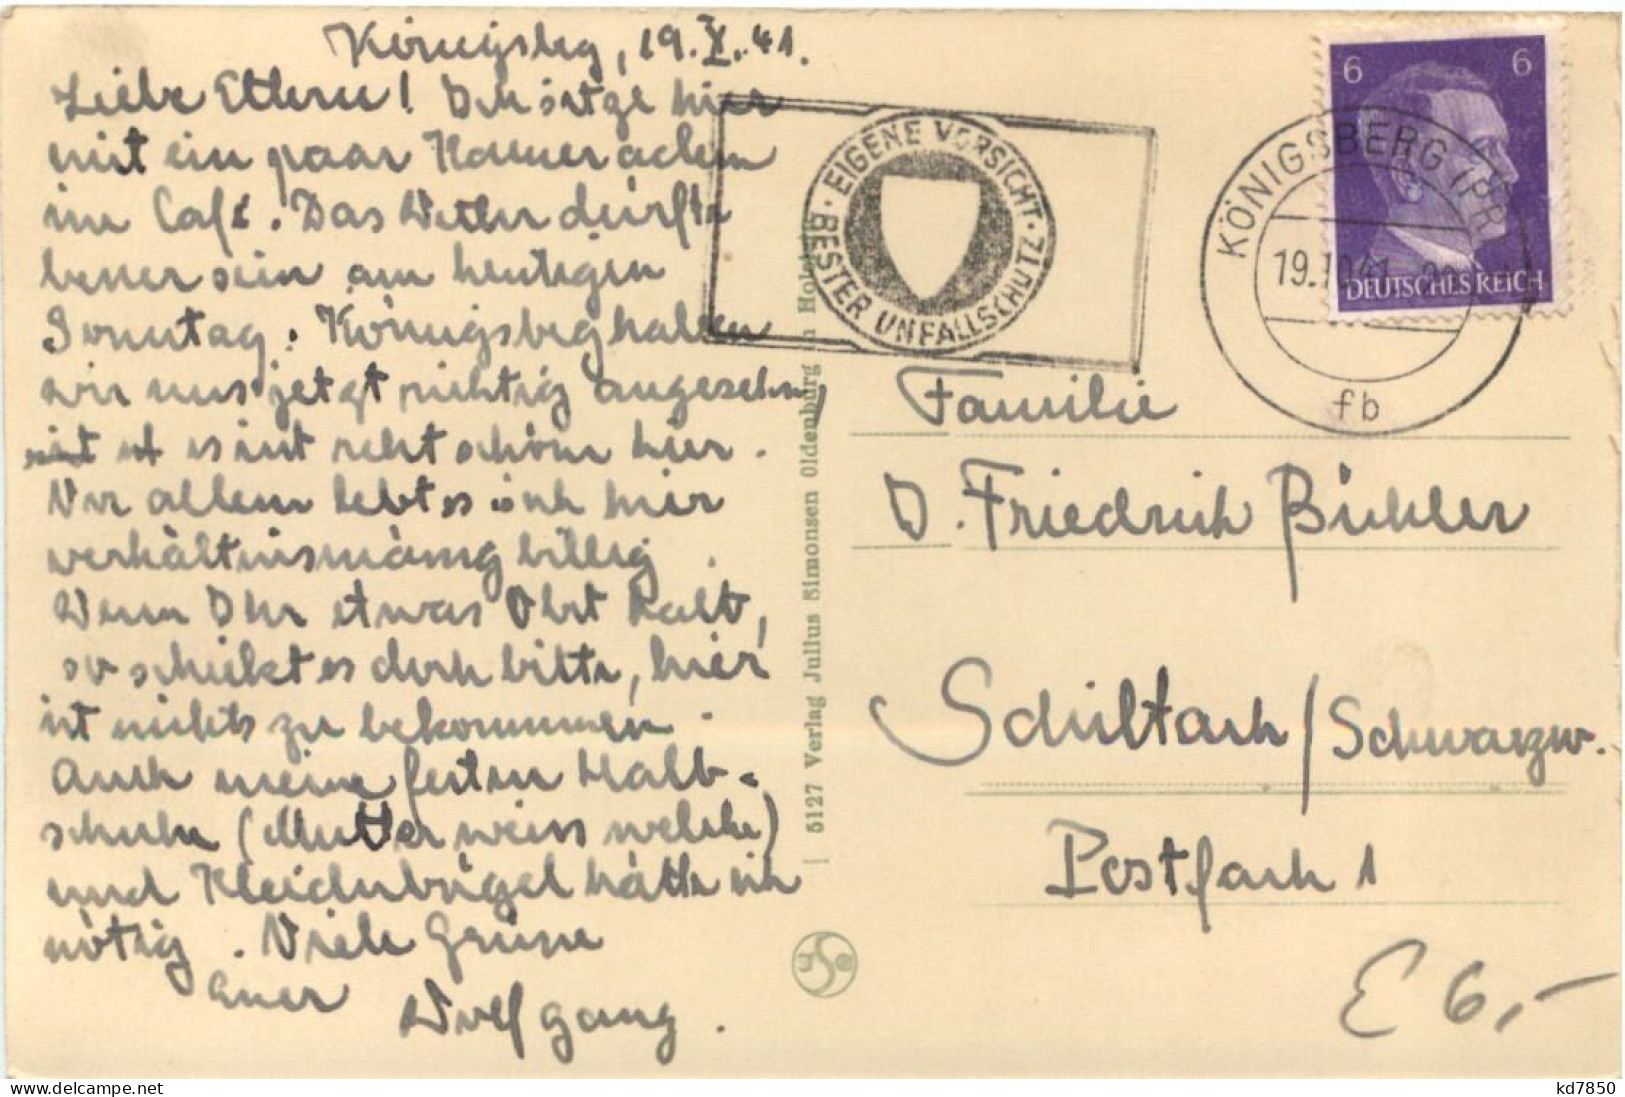 Königsbeg, 19. X. 41.
Liebe Eltern! Ich sitze hier
mit ein paar Kameraden
im Café. Das Wetter dürfte
besser sein am heutigen
Sonntag. Königsbeg haben
wir uns jetzt richtig angesehen,
es ist recht schön hier.
Vor allem lebt es sich hier
verhältnismässig billig.
Wenn Ihr etwas Obst habt,
so schickt es doch bitte, hier
ist nichts zu bekommen.
Auch meine festen Halb-
schuhe (Mutter weiss welche)
und Kleiderbügel hätte ich
nötig. Viele Grüsse
Euer Wolfgang.
5127 Verlag Julius Simonsen Oldenburg in Holst.
EIGENE VORSICHT · BESTER UNFALLSCHUTZ ·
KÖNIGSBERG (PR)
19.10.41
fb
6 6
DEUTSCHES REICH
Familie
D. Friedrich Bühler
Schiltach / Schwarzw.
Postfach 1
E 6,-
kd7850